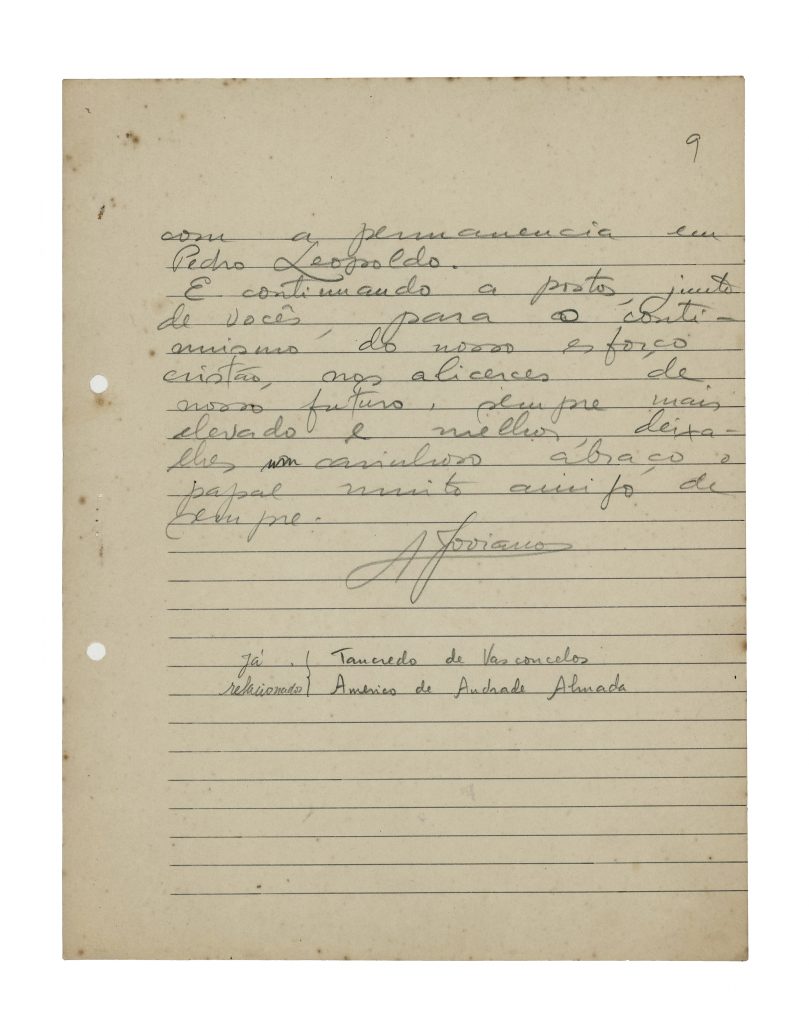 9
com a permanencia em
Pedro Leopoldo.
E continuando a postos, junto
de vocês, para o conti-
nuismo do nosso esforço
cristão, nos alicerces de
nosso futuro, sempre mais
elevado e melhor, deixa-
lhes um carinhoso abraço o
papai muito amigo de
sempre.
A Joviano
Já } Tancredo de Vasconcelos
relacionados } Américo de Andrade Almada